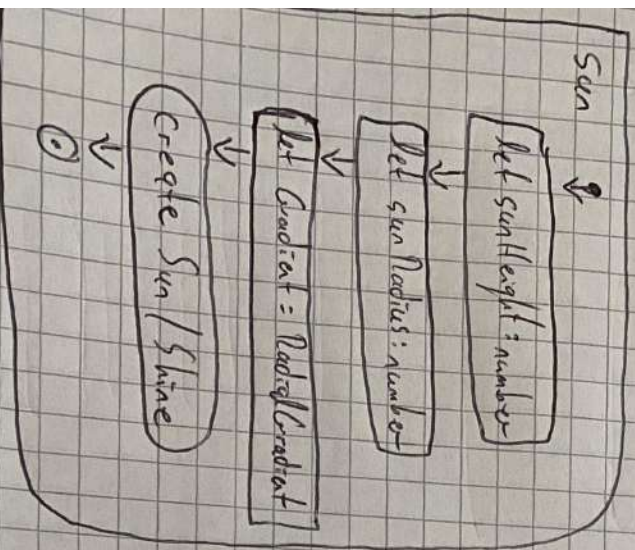 Sun
let sunHeight: number
let sunRadius: number
let Gradient = RadialGradient
Create Sun/Shine